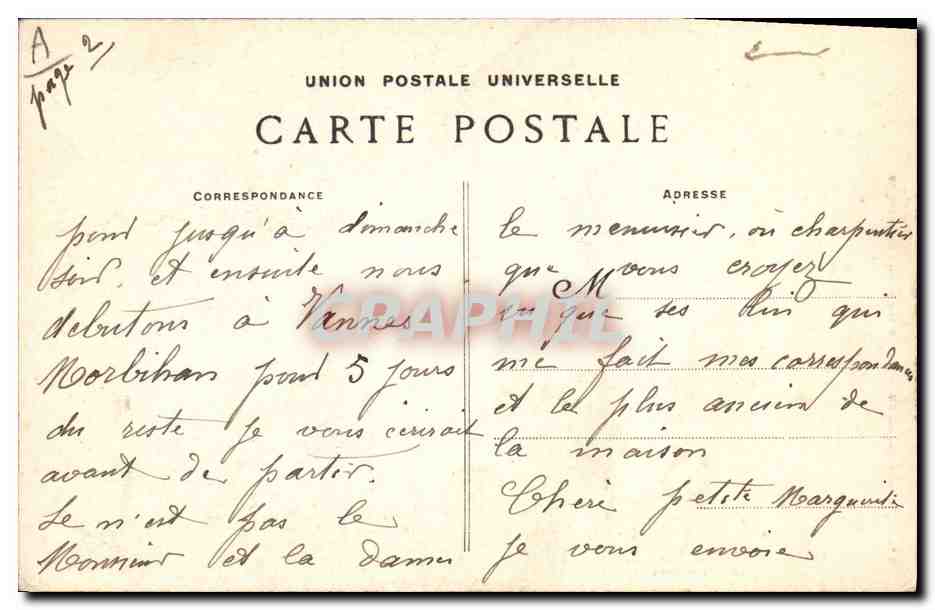 A
page 2
UNION POSTALE UNIVERSELLE
CARTE POSTALE
CORRESPONDANCE
pour jusqu'à dimanche
soir, et ensuite nous
debutons à Vannes
Morbihan pour 5 jours
du reste je vous écrirait
avant de partir.
Se n'est pas le
Monsieur et la dames
ADRESSE
le menuisier, où charpentier
que vous croyez
M
vu que ses lui qui
me fait mes correspondances
et le plus ancien de
la maison
Chère petite Marguerite
je vous envoie
CPAPHIL